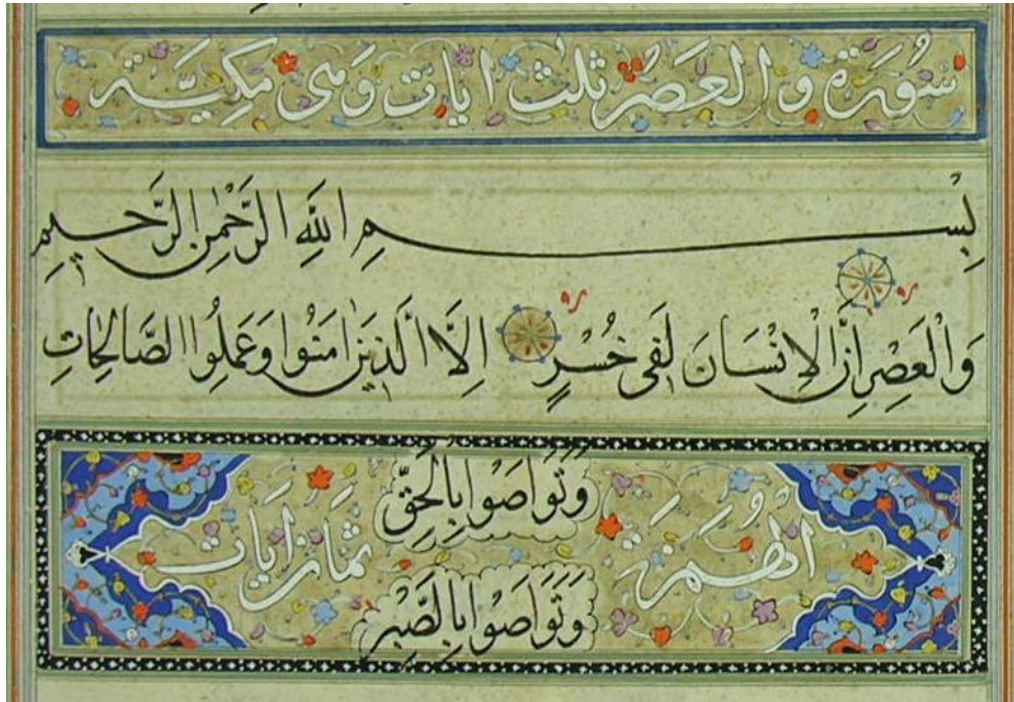 سُورَة وَالعَصْر ثلث ايات وَهى مَكِيَّة
بِسْمِ اللَّهِ الرَّحْمٰنِ الرَّحِيمِ
وَالْعَصْرِ اِنَّ الْاِنْسَانَ لَفِى خُسْرٍ اِلَّا الَّذِينَ اٰمَنُوا وَعَمِلُوا الصَّالِحَاتِ
وَتَوَاصَوا بِالْحَقِّ
الهُمَزَة ثمان ايات
وَتَوَاصَوا بِالصَّبْرِ